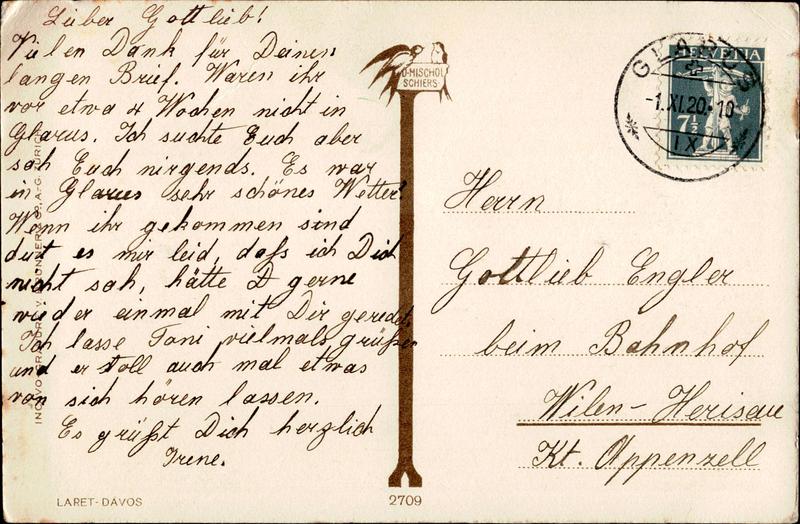 Lieber Gottlieb!
Vielen Dank für Deinen
langen Brief. Waren ihr
vor etwa 4 Wochen nicht in
Glarus. Ich suchte Euch aber
sah Euch nirgends. Es war
in Glarus sehr schönes Wetter.
Wenn ihr gekommen sind
dut es mir leid, dass ich Dich
nicht sah, hätte D gerne
wieder einmal mit Dir geredet.
Ich lasse Toni vielmals grüßen
und er soll auch mal etwas
von sich hören lassen.
Es grüßt Dich herzlich
Irene.
LARET-DAVOS
MISCHOL
SCHIERS
2709
HELVETIA
7½
GLARUS
-1.XI.20.-10
IX
Herrn
Gottlieb Engler
beim Bahnhof
Wilen-Herisau
Kt. Appenzell